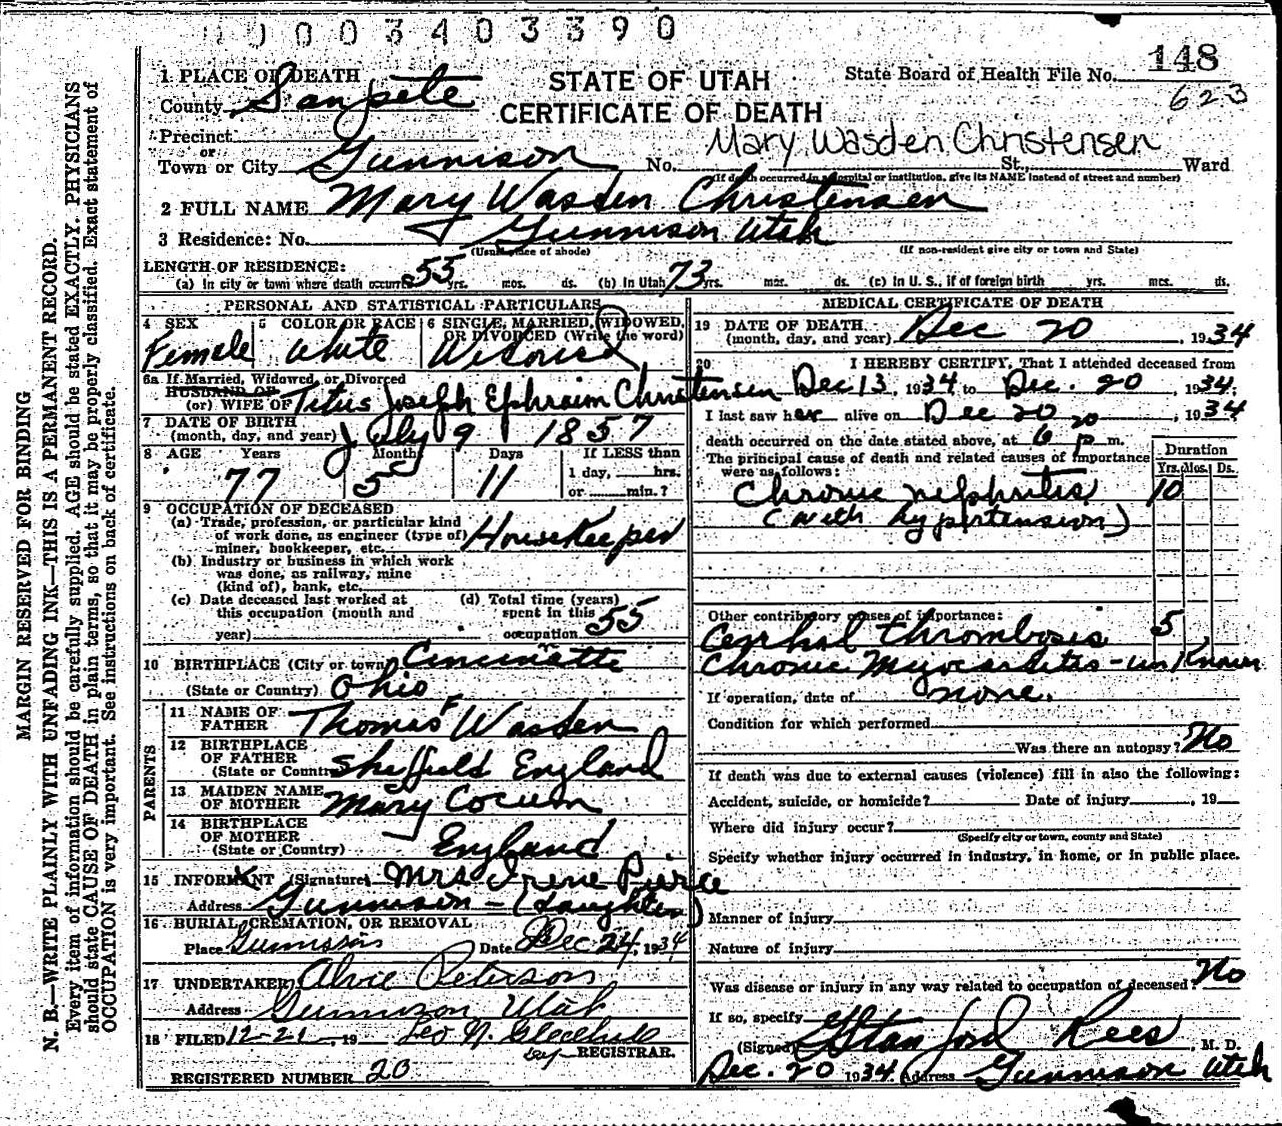 0003403390
148
STATE OF UTAH
CERTIFICATE OF DEATH
State Board of Health File No.
623
1 PLACE OF DEATH
County Sanpete
Precinct
or
Town or City Gunnison No. St., Ward
Mary Wasden Christensen
(If death occurred in a hospital or institution, give its NAME instead of street and number)
2 FULL NAME Mary Wasden Christensen
3 Residence: No. Gunnison Utah
(Usual place of abode) (If non-resident give city or town and State)
LENGTH OF RESIDENCE:
(a) In city or town where death occurred 55 yrs. mos. ds. (b) In Utah 73 yrs. mos. ds. (c) In U. S., if of foreign birth yrs. mcs. ds.
PERSONAL AND STATISTICAL PARTICULARS
4 SEX 5 COLOR OR RACE 6 SINGLE, MARRIED, WIDOWED,
OR DIVORCED (Write the word)
Female White Widowed
6a If Married, Widowed, or Divorced
HUSBAND OF
(or) WIFE OF Titus Joseph Ephraim Christensen
7 DATE OF BIRTH
(month, day, and year) July 9 1857
8 AGE Years Months Days If LESS than
1 day, hrs.
77 5 11 or min.?
9 OCCUPATION OF DECEASED
(a) Trade, profession, or particular kind
of work done, as engineer (type of)
miner, bookkeeper, etc. HouseKeeper
(b) Industry or business in which work
was done, as railway, mine
(kind of), bank, etc.
(c) Date deceased last worked at
this occupation (month and
year)
(d) Total time (years)
spent in this
occupation 55
10 BIRTHPLACE (City or town) Cincinatte
(State or Country) Ohio
PARENTS
11 NAME OF
FATHER Thomas Wasden
12 BIRTHPLACE
OF FATHER
(State or Country) Sheffield England
13 MAIDEN NAME
OF MOTHER Mary Cocum
14 BIRTHPLACE
OF MOTHER
(State or Country) England
15 INFORMANT (Signature) Mrs Irene Pierce
Address Gunnison - (Daughter)
16 BURIAL, CREMATION, OR REMOVAL
Place Gunnison Date Dec 24, 1934
17 UNDERTAKER Alvie Peterson
Address Gunnison Utah
18 FILED 12-21-, 19 Leo N. Gledhill
REGISTRAR.
REGISTERED NUMBER 20
MEDICAL CERTIFICATE OF DEATH
19 DATE OF DEATH
(month, day, and year) Dec 20, 1934
20 I HEREBY CERTIFY, That I attended deceased from
Dec 13, 1934 to Dec. 20, 1934.
I last saw her alive on Dec 20, 1934
death occurred on the date stated above, at 6 20 p m.
The principal cause of death and related causes of importance
were as follows:
Duration
Yrs. Mos. Ds.
Chronic nephritis 10
(with hypertension)
Other contributory causes of importance:
Cerrbal thrombosis 5
Chronic Myocarditis - unknown
If operation, date of none.
Condition for which performed
Was there an autopsy? No
If death was due to external causes (violence) fill in also the following:
Accident, suicide, or homicide? Date of injury, 19
Where did injury occur?
(Specify city or town, county and State)
Specify whether injury occurred in industry, in home, or in public place.
Manner of injury
Nature of injury
Was disease or injury in any way related to occupation of deceased? No
If so, specify
(Signed) G Stanford Rees, M. D.
Dec. 20 1934 Address Gunnison Utah
MARGIN RESERVED FOR BINDING
N. B.—WRITE PLAINLY WITH UNFADING INK—THIS IS A PERMANENT RECORD.
Every item of information should be carefully supplied. AGE should be stated EXACTLY. PHYSICIANS
should state CAUSE OF DEATH in plain terms, so that it may be properly classified. Exact statement of
OCCUPATION is very important. See instructions on back of certificate.